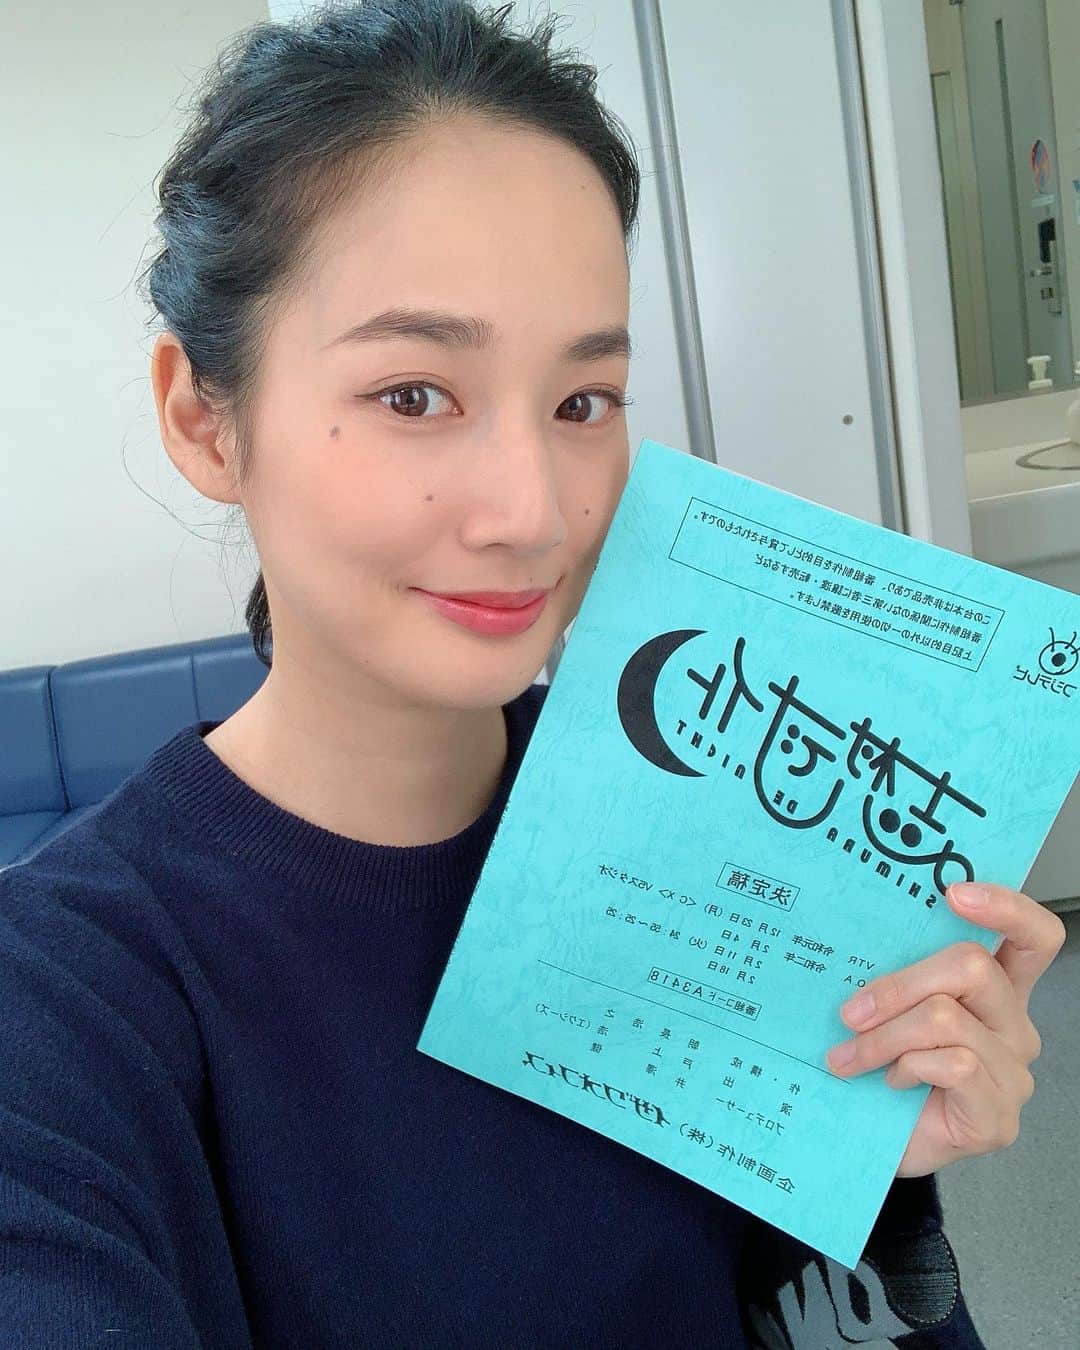 この台本は非売品であり、番組制作を目的として貸与されたものです。
番組制作に関係のない第三者に譲渡・転売するなど
上記目的以外の一切の使用を厳禁します。
フジテレビ
志村でナイト
SHIMURA DE NIGHT
決定稿
VTR 令和元年 12月23日(月) <C X> V5スタジオ
O.A 令和二年 2月 4日
2月11日(火) 24:55~25:25
2月18日
番組コード A3418
作・構成 朝長浩之
演出 戸上浩(エクシーズ)
プロデューサー 井澤健
企画制作(株)イザワオフィス